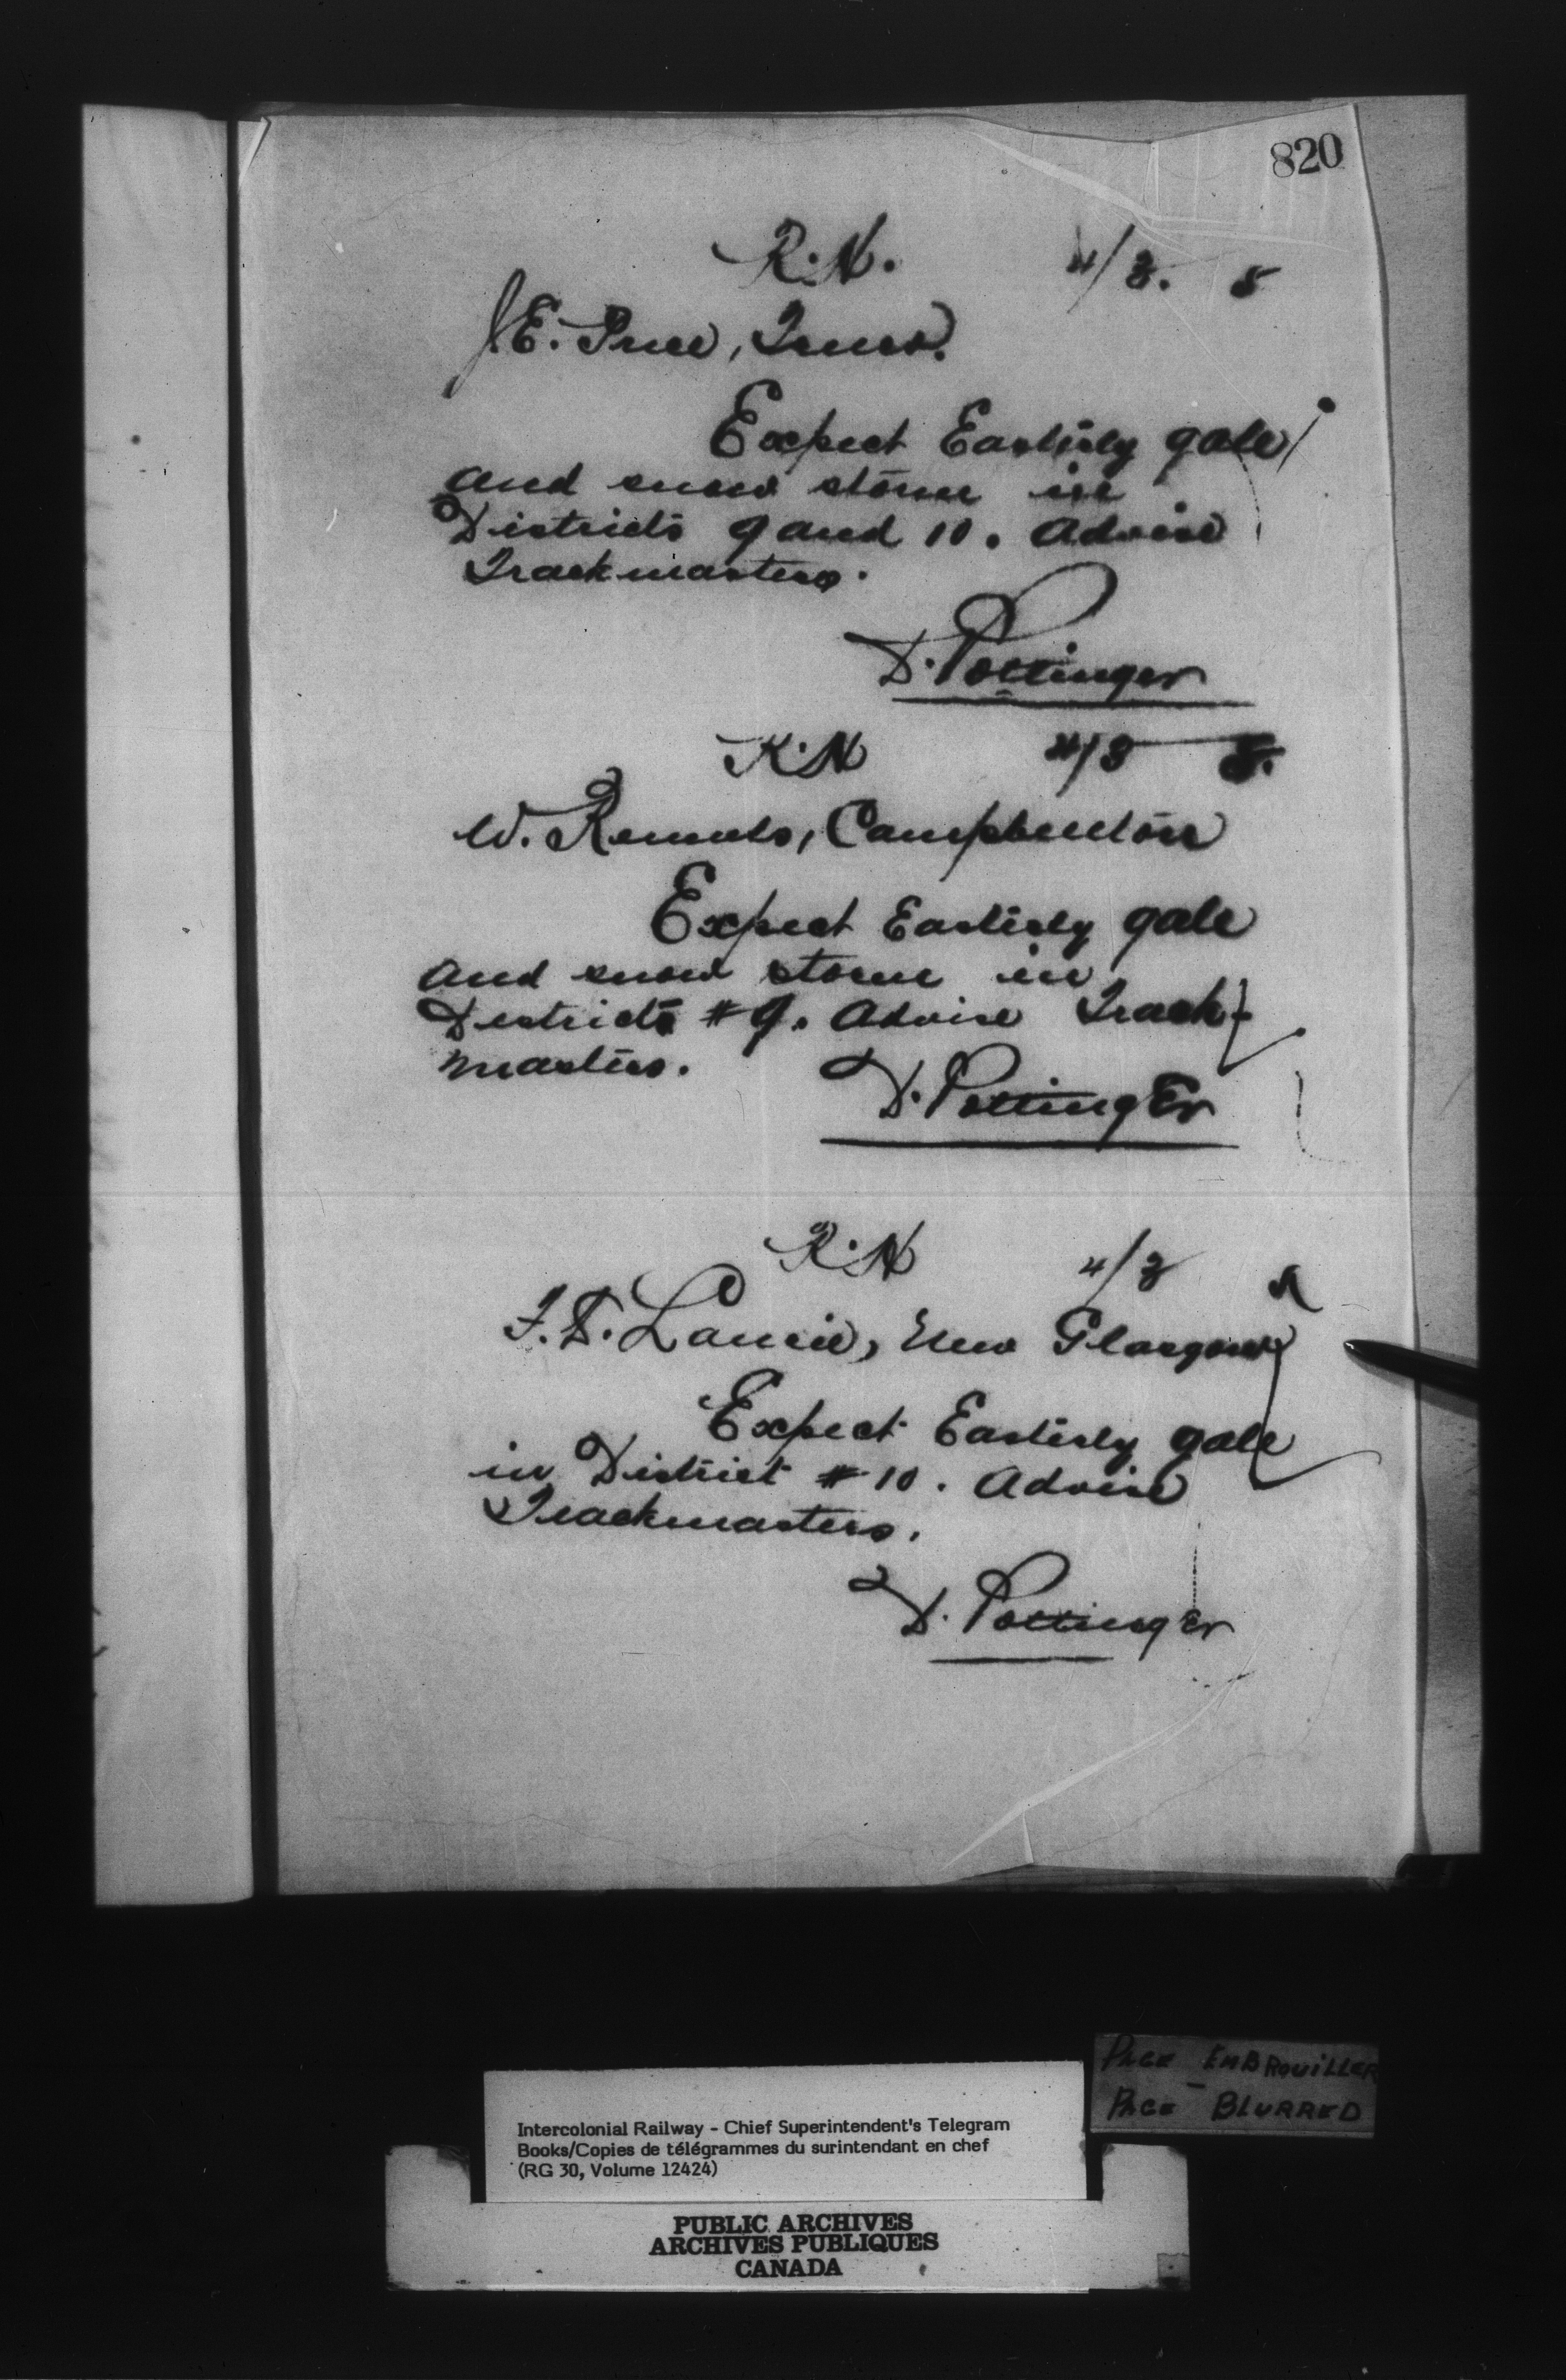 820
R.N. 4/3. 8
J.E. Price, Truro.
Expect Easterly gale
and snow storm in
Districts 9 and 10. Advise
Trackmasters.
D. Pottinger
R.N 4/3 8.
W. Rennels, Campbellton
Expect Easterly gale
and snow storm in
Districts #9. Advise Track-
masters.
D. Pottinger
R.N 4/3
Y.T. Laurie, New Glasgow
Expect Easterly gale
in District #10. Advise
Trackmasters.
D. Pottinger
PAGE EMBROUILLER
PAGE - BLURRED
Intercolonial Railway - Chief Superintendent's Telegram
Books/Copies de télégrammes du surintendant en chef
(RG 30, Volume 12424)
PUBLIC ARCHIVES
ARCHIVES PUBLIQUES
CANADA